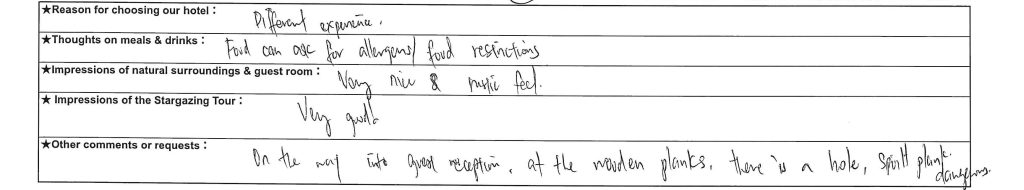 ★Reason for choosing our hotel : Different experience.
★Thoughts on meals & drinks : Food can ask for allergens/ food restrictions
★Impressions of natural surroundings & guest room : Very nice & rustic feel.
★ Impressions of the Stargazing Tour : Very good!
★Other comments or requests : On the way into guest reception, at the wooden planks, there is a hole, split plank.
dangerous.